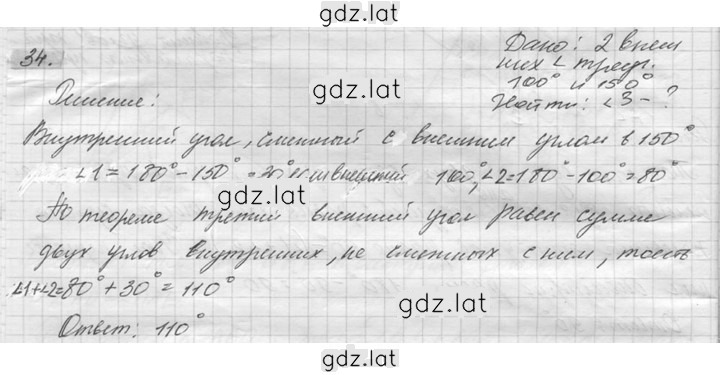 gdz.lat
34.
Дано: 2 внеш
них ∠ треуг.
100° и 150°
Найти: ∠3 - ?
gdz.lat
Решение:
Внутренний угол, смежный с внешним углом в 150°
∠1 = 180° - 150° = 30° если внешний 100°, ∠2 = 180° - 100° = 80°
gdz.lat
По теореме третий внешний угол равен сумме
двух углов внутренних, не смежных с ним, то есть
∠1+∠2=80° + 30° = 110°
gdz.lat
Ответ: 110°
gdz.lat